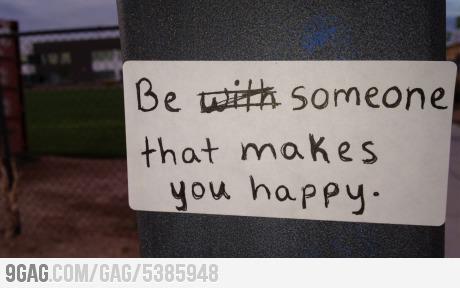 Be with someone
that makes
you happy.
9GAG.COM/GAG/5385948